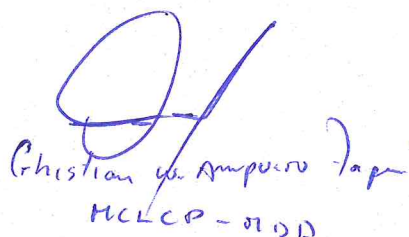 Christian W. Ampuero
MCLCP - MDD